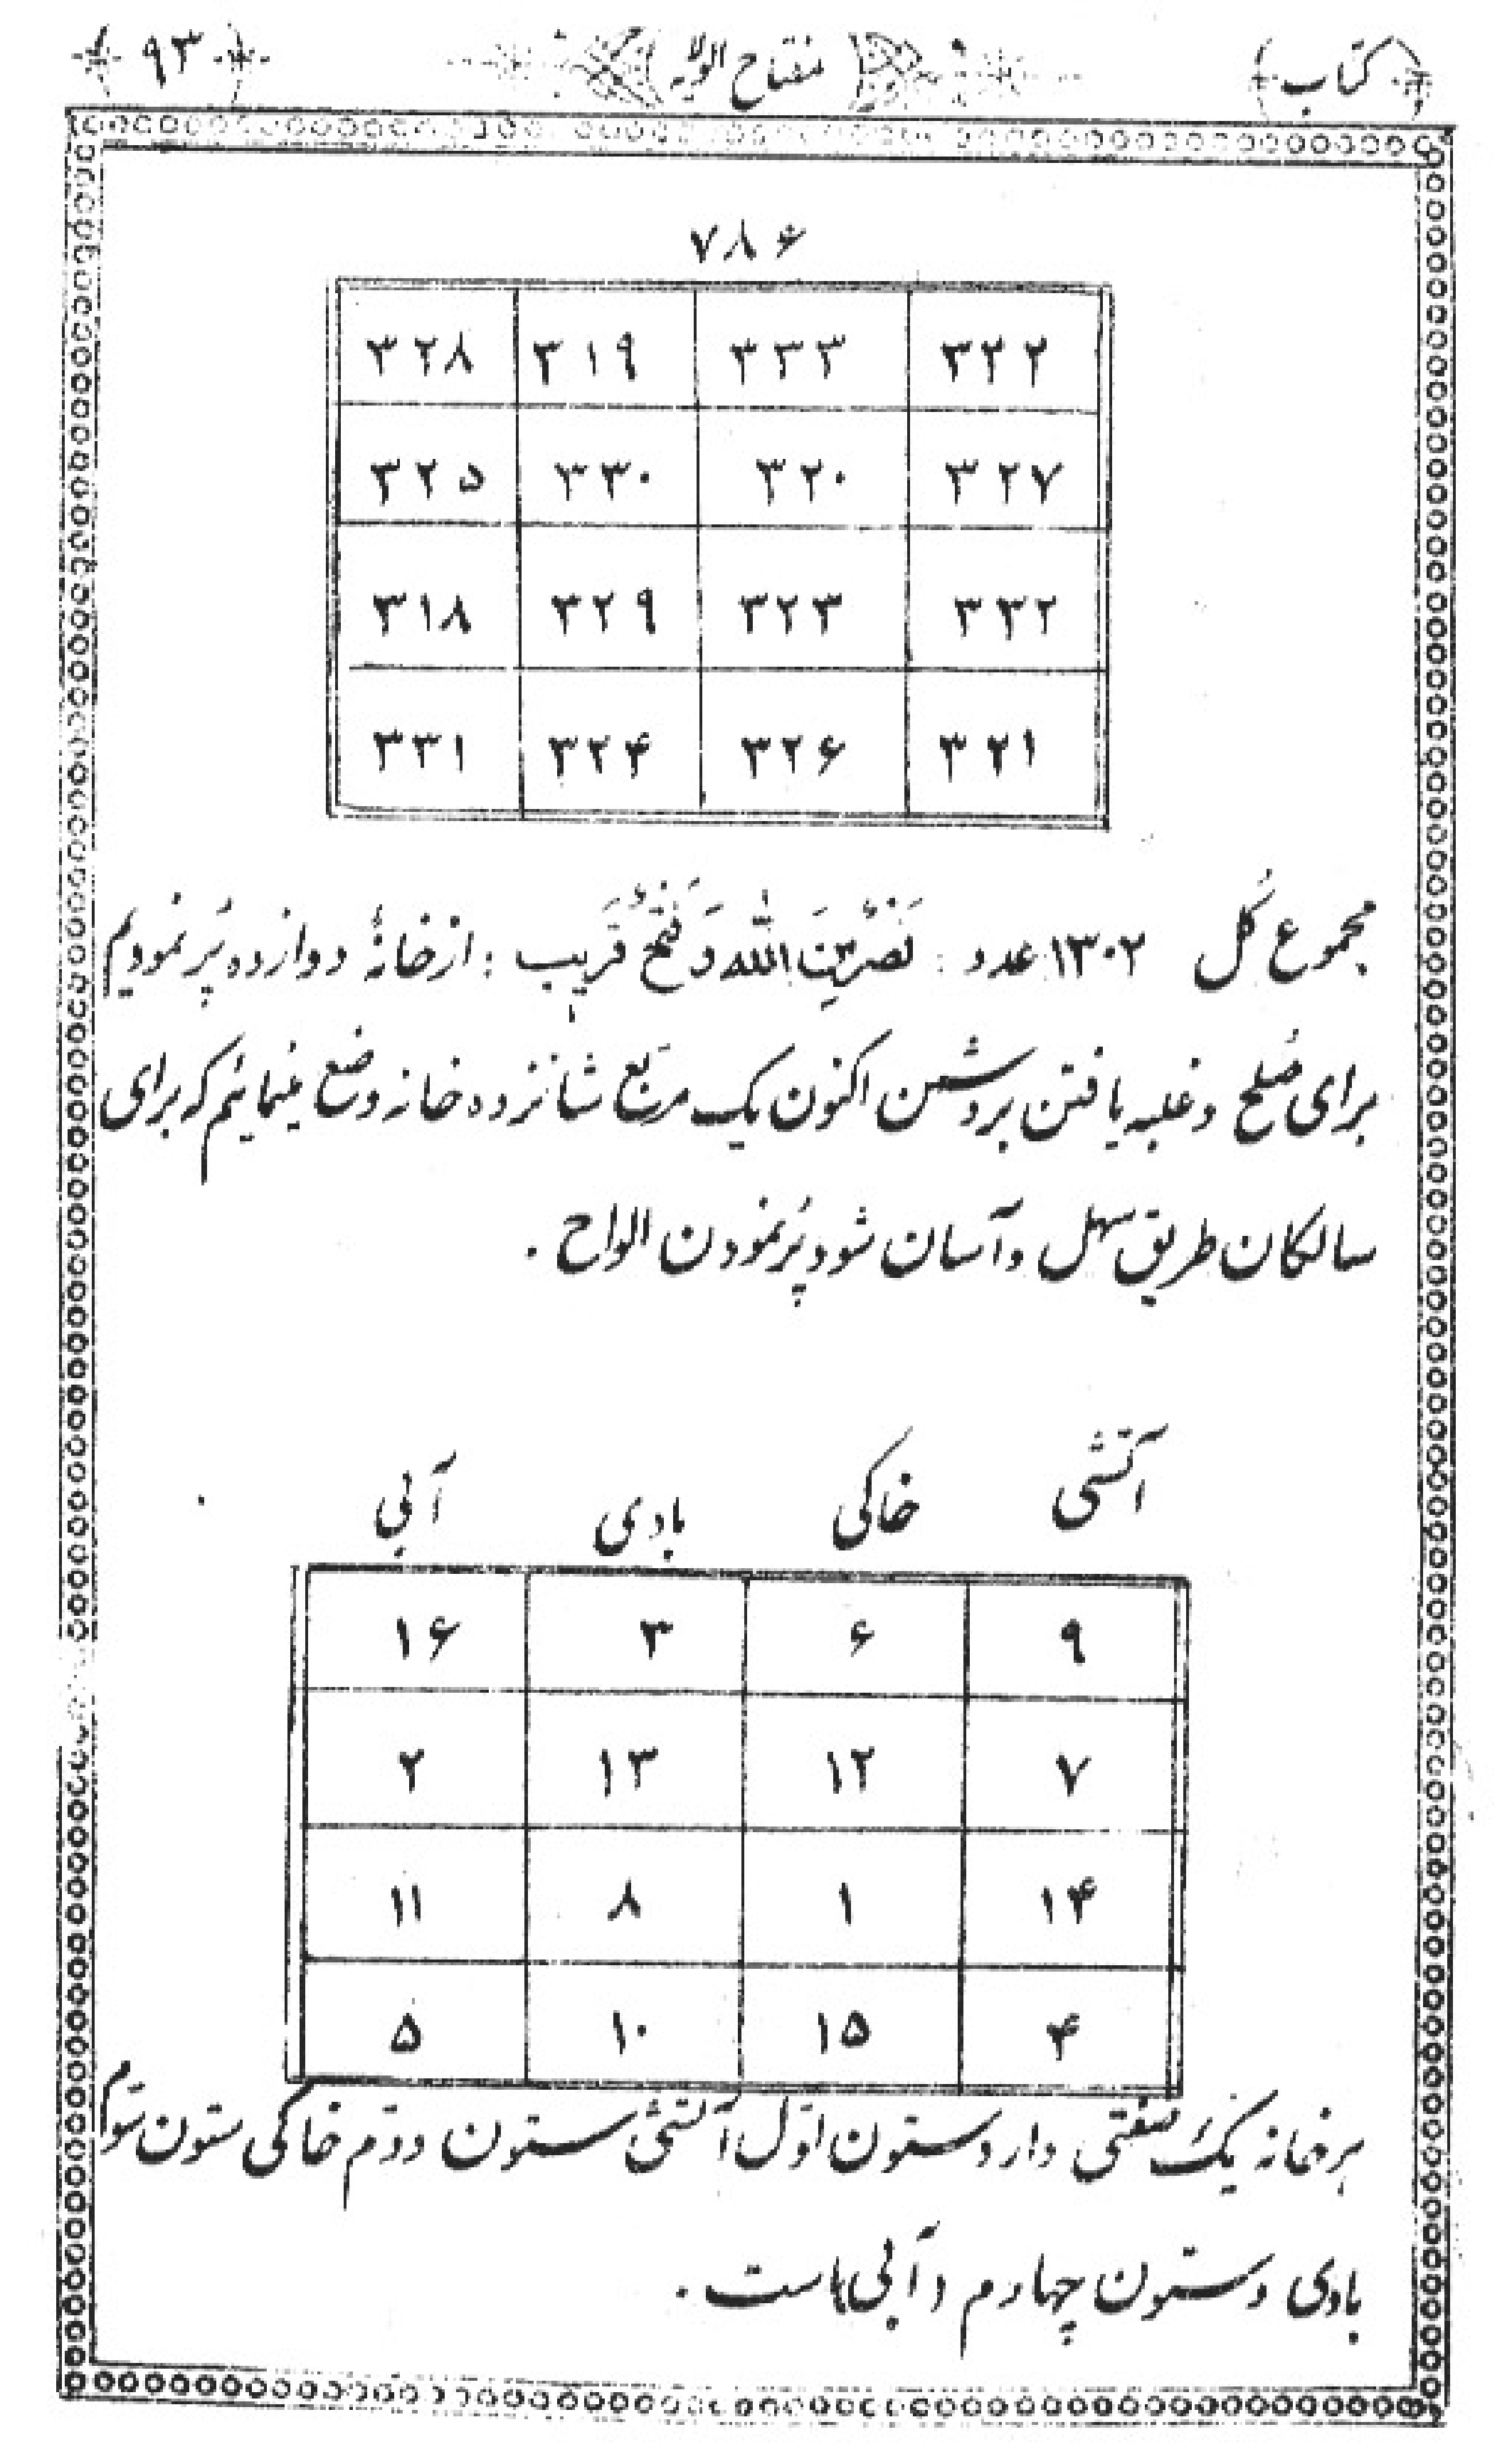 کتاب مفتاح الولایه ۹۳
۷۸۶
۳۲۸ ۳۱۹ ۳۳۳ ۳۲۲
۳۲۵ ۳۳۰ ۳۲۰ ۳۲۷
۳۱۸ ۳۲۹ ۳۲۳ ۳۳۲
۳۳۱ ۳۲۴ ۳۲۶ ۳۲۱
مجموع کُل ۱۳۰۲ عدد : نَصْرٌ مِنَ اللّٰه وَ فَتْحٌ قَرِیب : از خانهٔ دوازده پُر نمودیم
برای صُلح و غلبه یافتن بر دشمن اکنون یک مربّع شانزده خانه وضع مینمائیم که برای
سالکان طریق سهل و آسان شود پُر نمودن الواح .
آتشی خاکی بادی آبی
۱۶ ۳ ۶ ۹
۲ ۱۳ ۱۲ ۷
۱۱ ۸ ۱ ۱۴
۵ ۱۰ ۱۵ ۴
هر خانه یک صفتی دارد ستون اوّل آتشی ستون دوّم خاکی ستون سّوم
بادی و ستون چهارم آبی است .